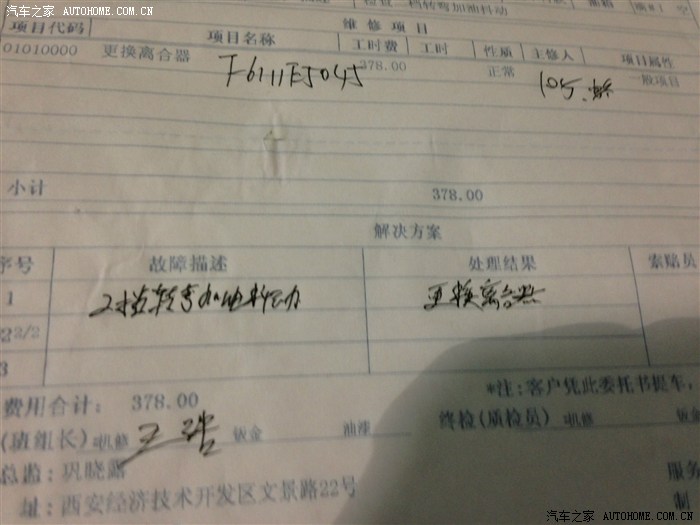 汽车之家 AUTOHOME.COM.CN
检查二档转弯加油抖动
维修项目
项目代码 项目名称 工时费 工时 性质 主修人 项目属性
01010000 更换离合器 378.00 正常 一般项目
小计 378.00
解决方案
序号 故障描述 处理结果 索赔员
1 2档转弯加油抖动 更换离合器
2 2/2
3
费用合计: 378.00 *注:客户凭此委托书提车,
(班组长) 机修 钣金 油漆 终检(质检员) 机修
总监: 巩晓露 服务
址: 西安经济技术开发区文景路22号 制
汽车之家 AUTOHOME.COM.CN